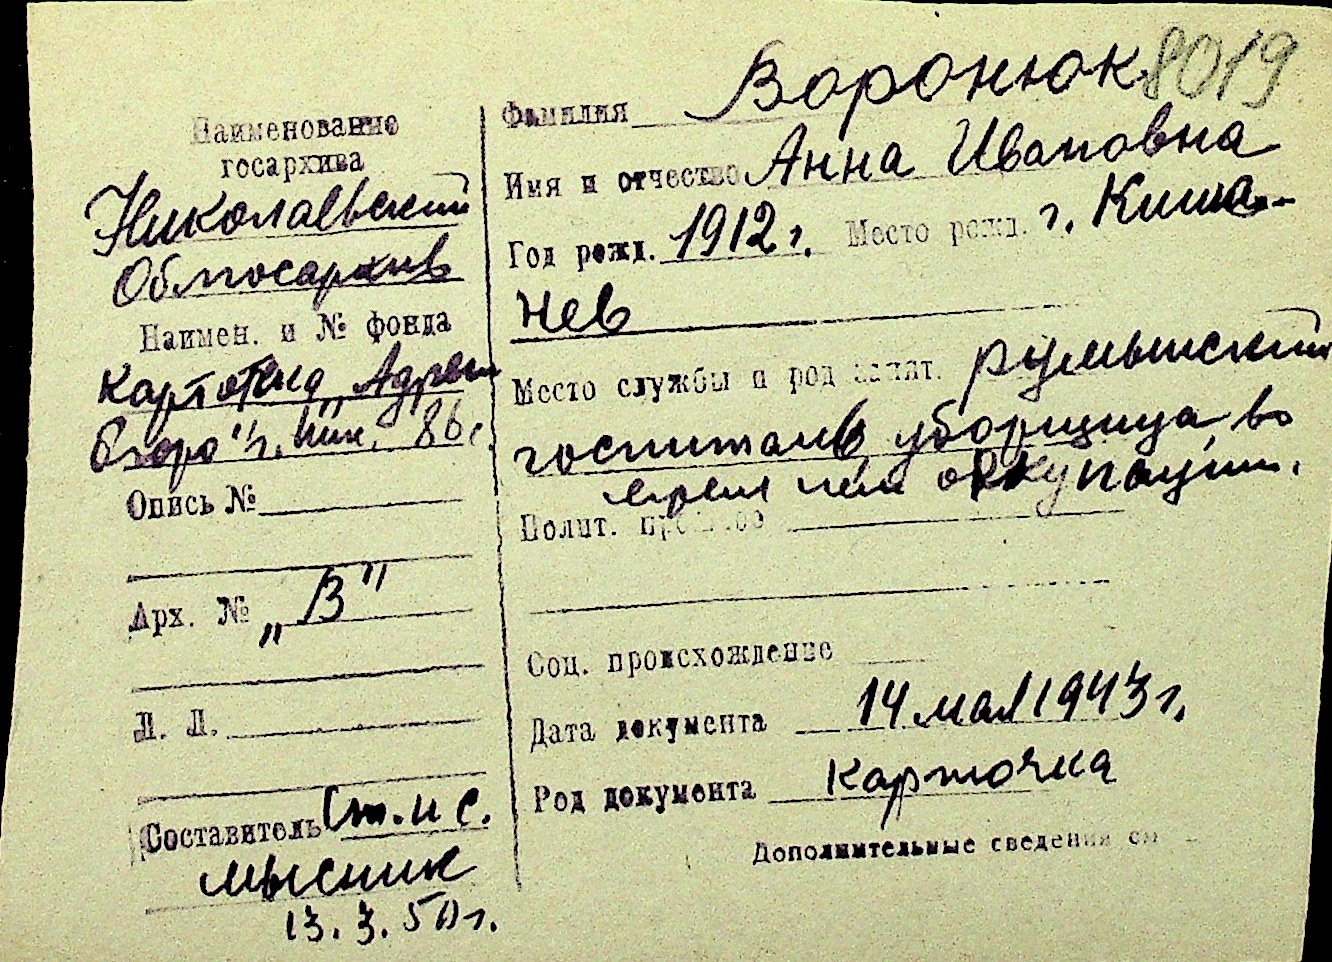 8019
Наименование
госархива
Николаевский
Облгосархив
Наимен. и № фонда
Картотека „Адресн
бюро" г. Ник. 86 г
Опись №
Арх. № „В"
Л. Л.
Составитель Ст. н с.
Мысник
13.3.50 г.
Фамилия Воронюк
Имя и отчество Анна Ивановна
Год рожд. 1912 г. Место рожд. г. Киши-
нев
Место службы и род занят. румынский
госпиталь уборщица во
время нем оккупации.
Полит. прошлое
Соц. происхождение
Дата документа 14 мая 1943 г.
Род документа карточка
Дополнительные сведения см